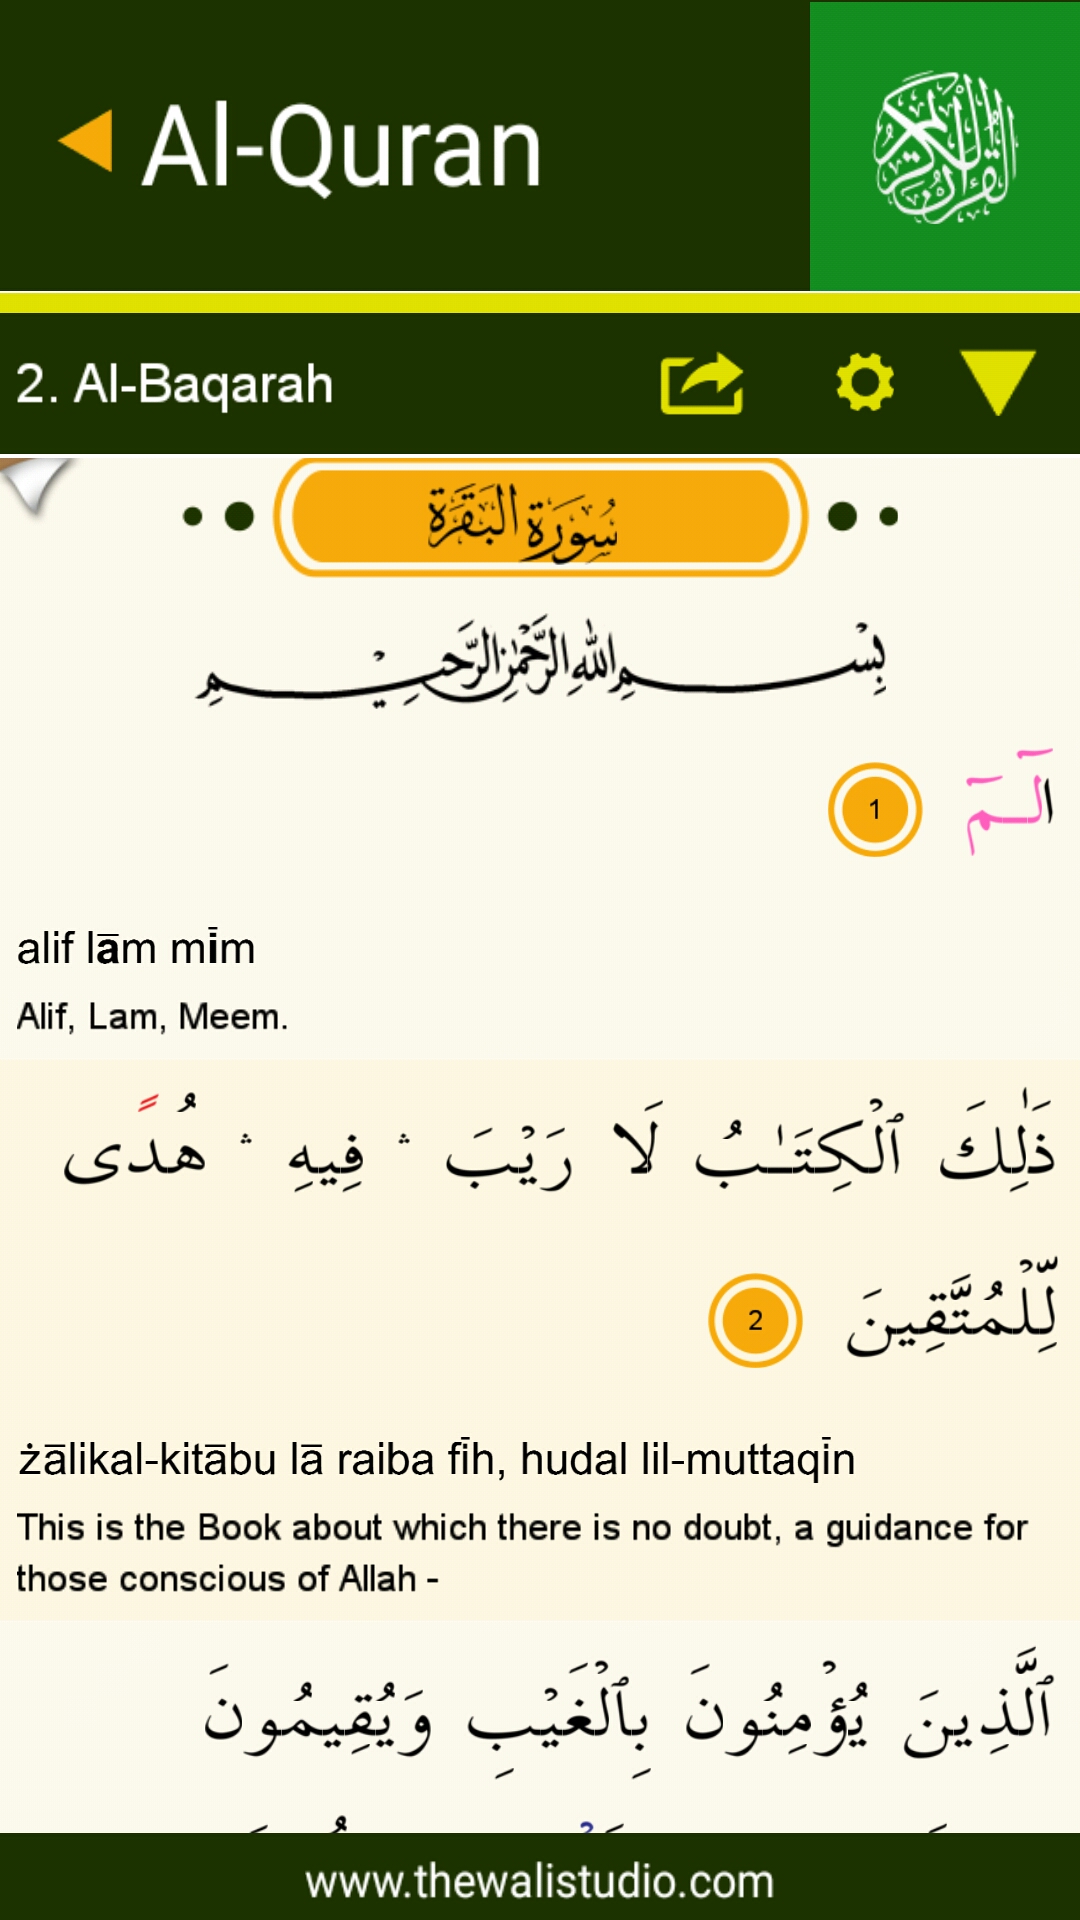 Al-Quran
القرآن الكريم
2. Al-Baqarah
سُورَة البَقَرَة
بِسْمِ اللهِ الرَّحْمٰنِ الرَّحِيْمِ
الٓـمٓ 1
alif lām mīm
Alif, Lam, Meem.
ذَٰلِكَ ٱلْكِتَـٰبُ لَا رَيْبَ ۛ فِيهِ ۛ هُدًى
لِّلْمُتَّقِينَ 2
żālikal-kitābu lā raiba fīh, hudal lil-muttaqīn
This is the Book about which there is no doubt, a guidance for
those conscious of Allah -
ٱلَّذِينَ يُؤْمِنُونَ بِٱلْغَيْبِ وَيُقِيمُونَ
www.thewalistudio.com